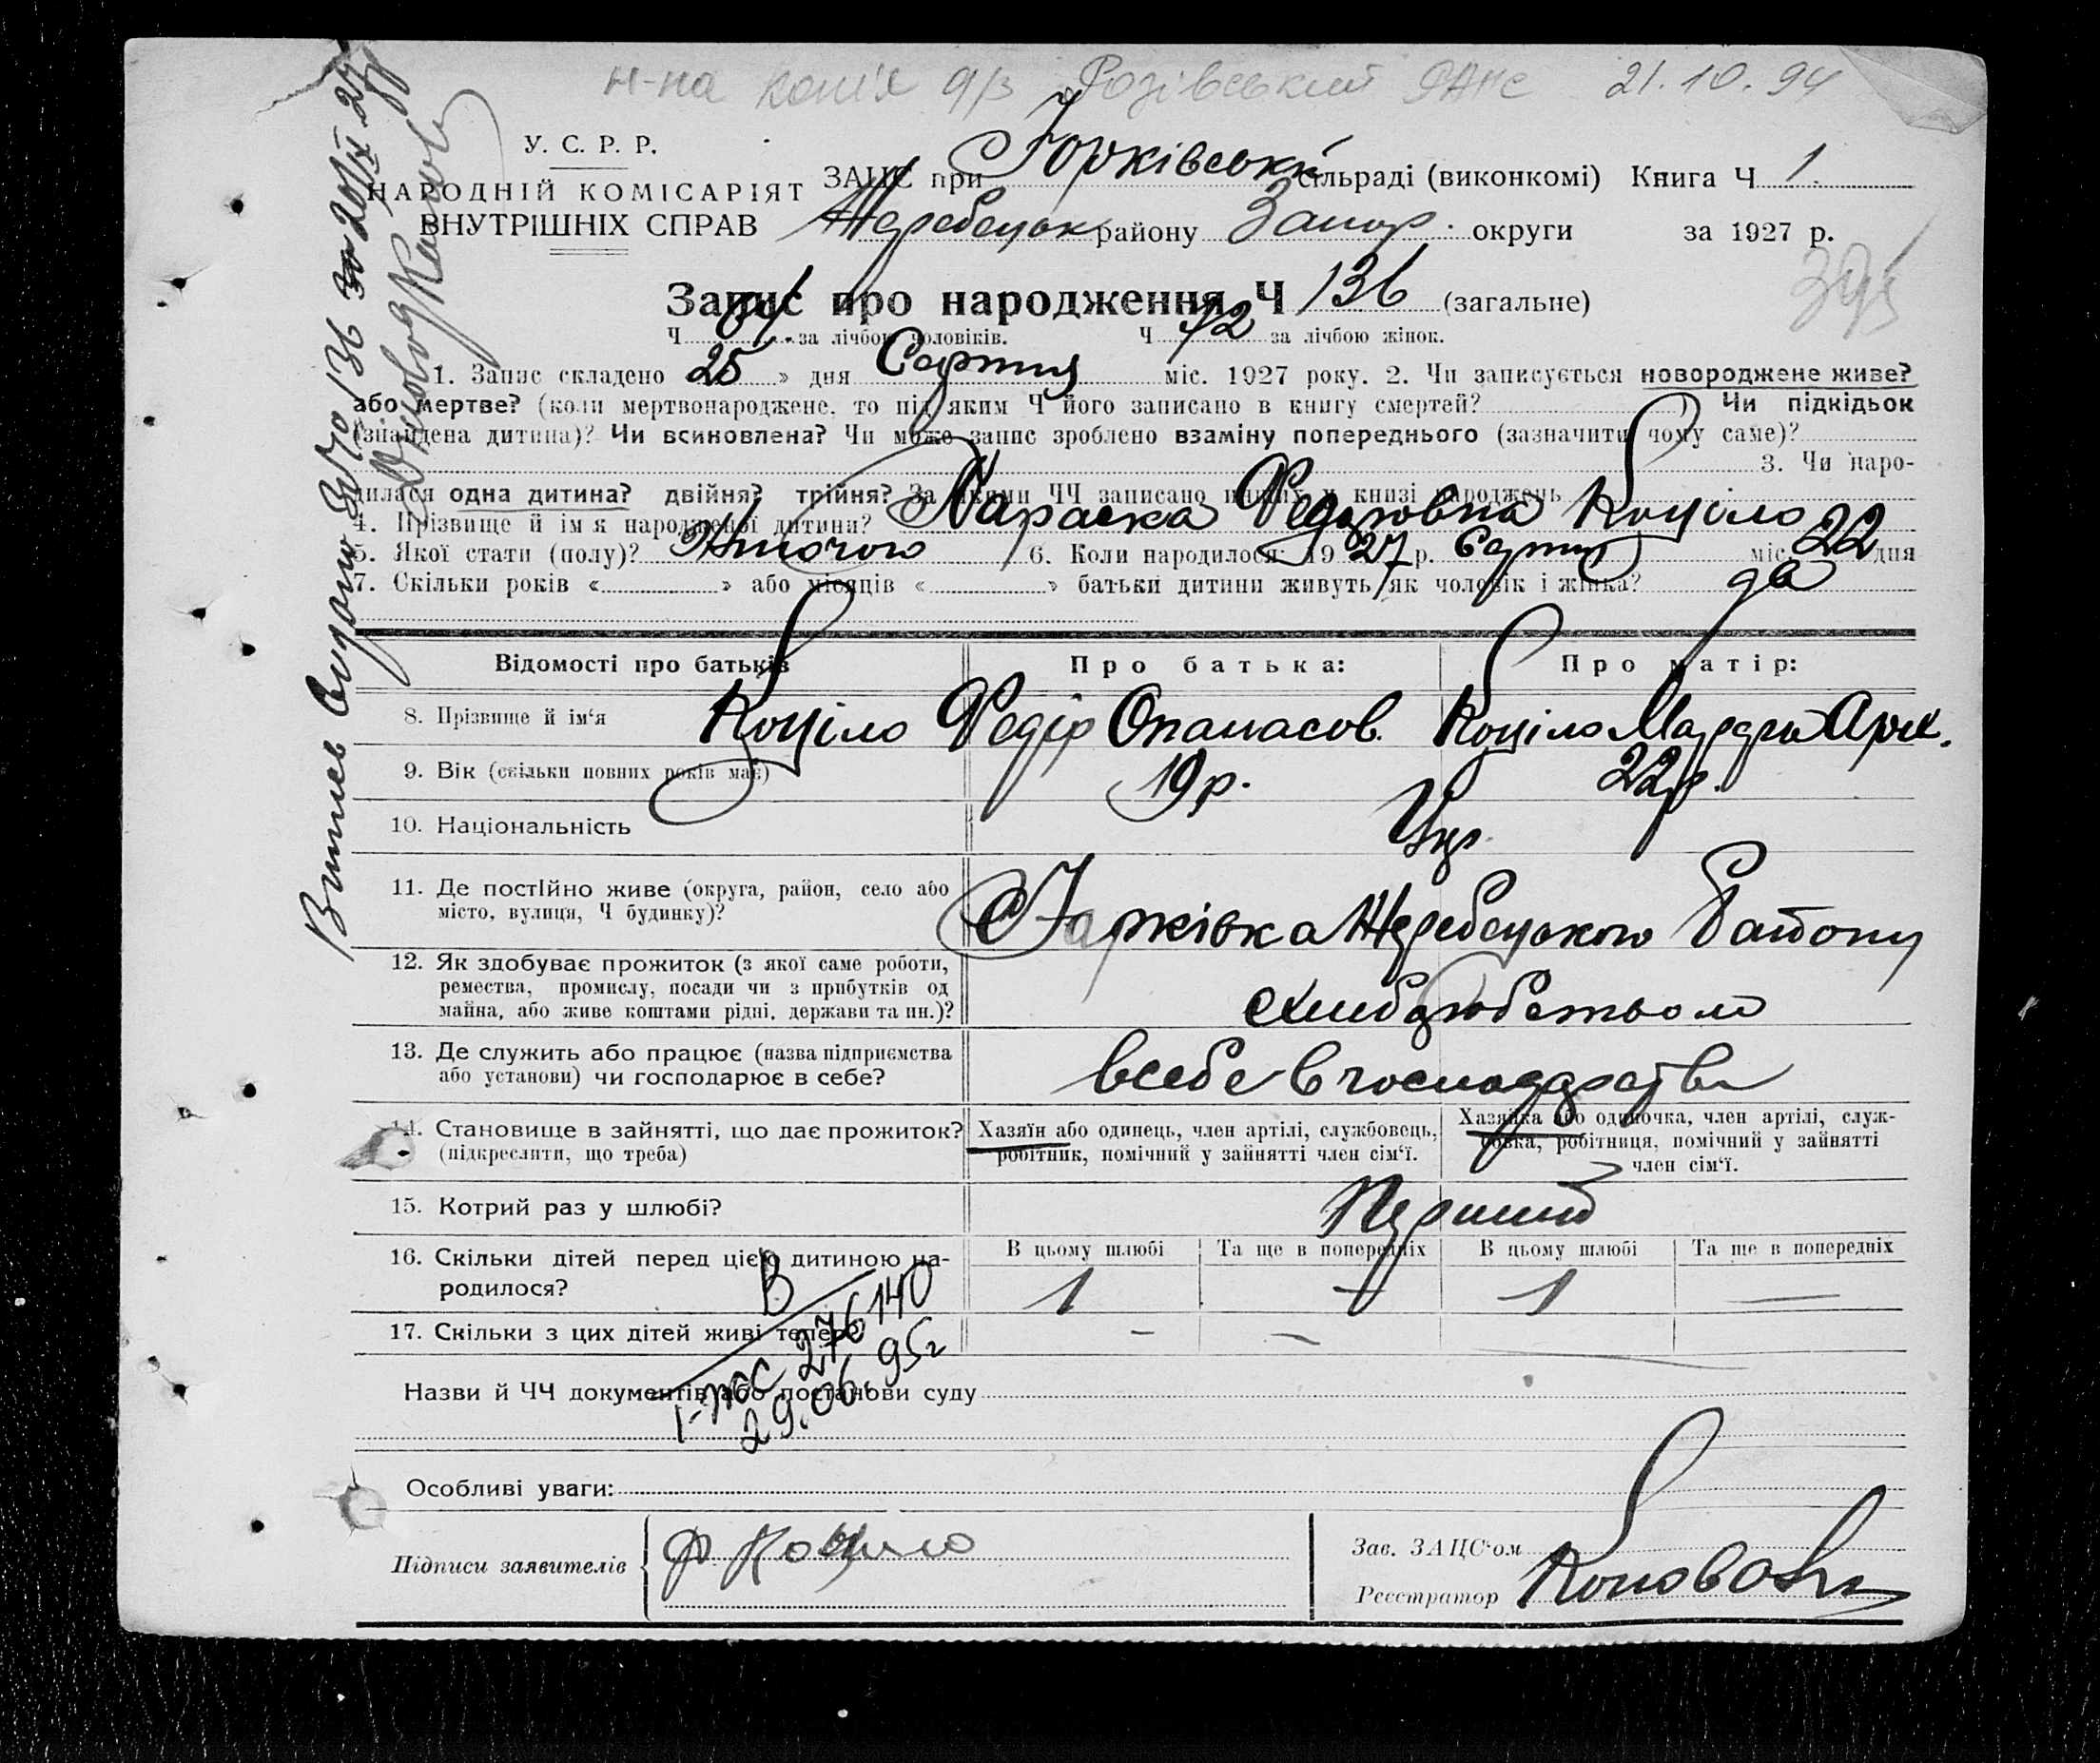 н-на копія д/з Розівський РАГС 21.10.94
У. С. Р. Р.
НАРОДНІЙ КОМІСАРІЯТ
ВНУТРІШНІХ СПРАВ
ЗАПИС при Юрківськ сільраді (виконкомі) Книга Ч 1.
Жеребецьк. району Запор. округи за 1927 р.
Запис про народження Ч 136 (загальне)
Ч 64 за лічбою чоловіків. Ч 72 за лічбою жінок.
1. Запис складено 25 » дня Серпня міс. 1927 року. 2. Чи записується новороджене живе?
або мертве? (коли мертвонароджене, то під яким Ч його записано в книгу смертей? ) Чи підкідьок
(знайдена дитина)? Чи всиновлена? Чи може запис зроблено взаміну попереднього (зазначити чому саме)?
3. Чи наро-
дилася одна дитина? двійня? трійня? За якими ЧЧ записано инших у книзі народжень
4. Прізвище й ім'я народженої дитини? Параска Федоровна Коціло
5. Якої стати (полу)? Жіночого 6. Коли народилося: 1927 р. Серпня міс. 22 дня
7. Скільки років « » або місяців « » батьки дитини живуть як чоловік і жінка? да
Відомості про батьків Про батька: Про матір:
8. Прізвище й ім'я Коціло Федір Опанасов. Коціло
9. Вік (скільки повних років має) 19 р. 22 р.
10. Національність Укр.
11. Де постійно живе (округа, район, село або
місто, вулиця, Ч будинку)?
Жеребецького Району
12. Як здобуває прожиток (з якої саме роботи,
ремества, промислу, посади чи з прибутків од
майна, або живе коштами рідні, держави та ин.)?
хлиборобством
13. Де служить або працює (назва підприємства
або установи) чи господарює в себе?
всебе в господарстві
14. Становище в зайнятті, що дає прожиток?
(підкреслити, що треба)
Хазяїн або одинець, член артілі, службовець,
робітник, помічний у зайнятті член сім'ї.
Хазяйка або одиночка, член артілі, служ-
бовка, робітниця, помічний у зайнятті
член сім'ї.
15. Котрий раз у шлюбі? Перший
16. Скільки дітей перед цією дитиною на-
родилося?
В цьому шлюбі Та ще в попередніх В цьому шлюбі Та ще в попередніх
1 — 1 —
17. Скільки з цих дітей живі тепер? — —
В
276140
29.06.95г
Назви й ЧЧ документів або постанови суду
Особливі уваги:
Підписи заявителів Ф Коціло
Зав. ЗАЦС'ом
Реєстратор Коновал